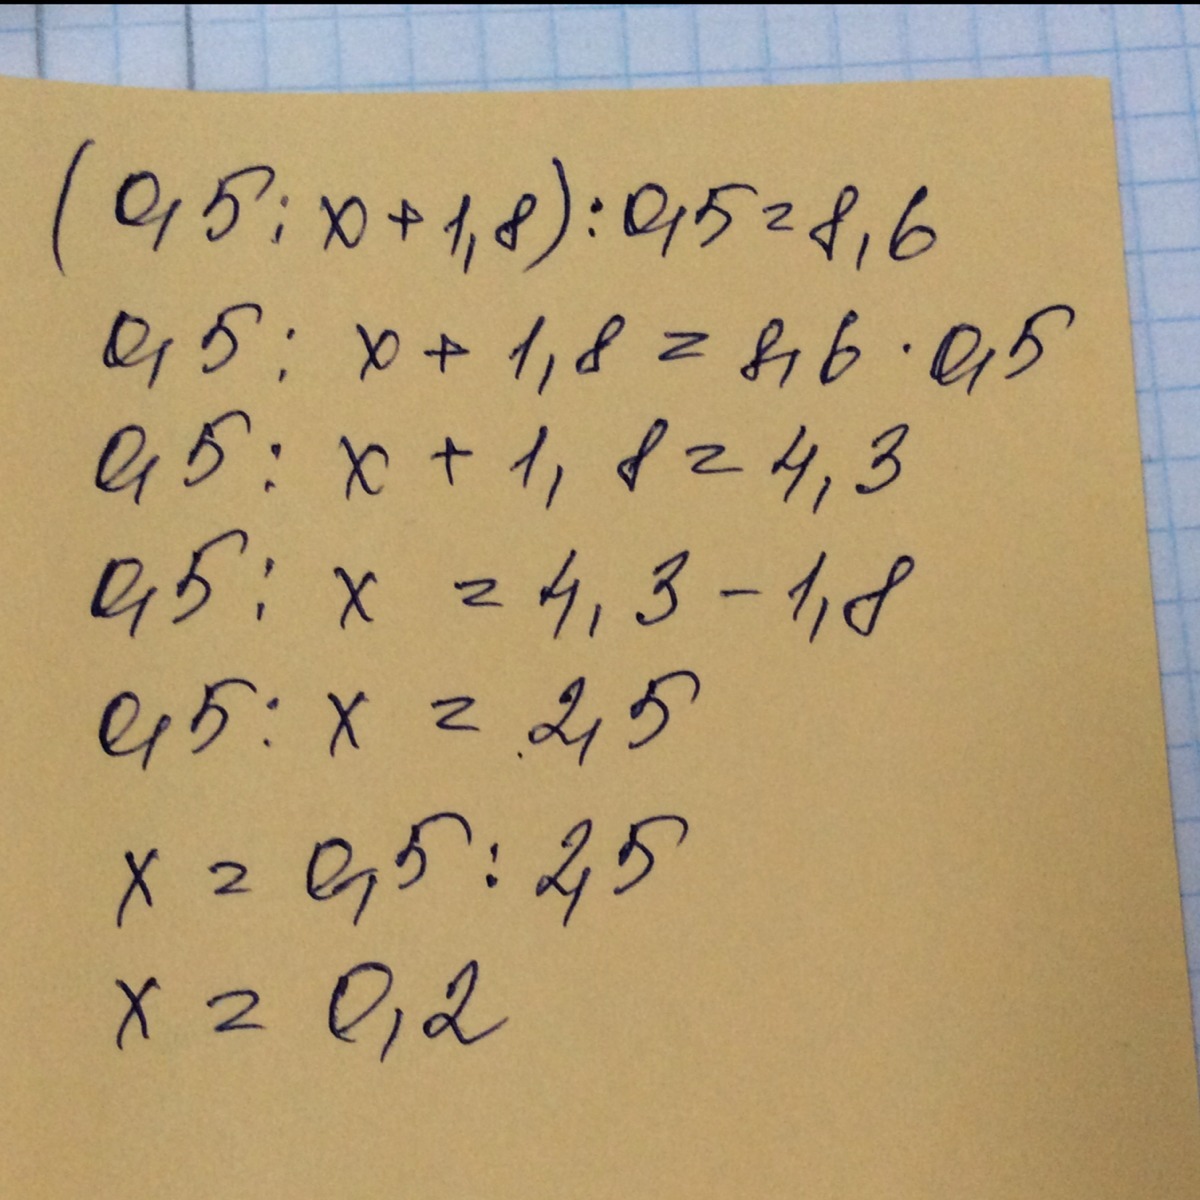 (0,5 : x + 1,8) : 0,5 = 8,6
0,5 : x + 1,8 = 8,6 · 0,5
0,5 : x + 1,8 = 4,3
0,5 : x = 4,3 - 1,8
0,5 : x = 2,5
x = 0,5 : 2,5
x = 0,2